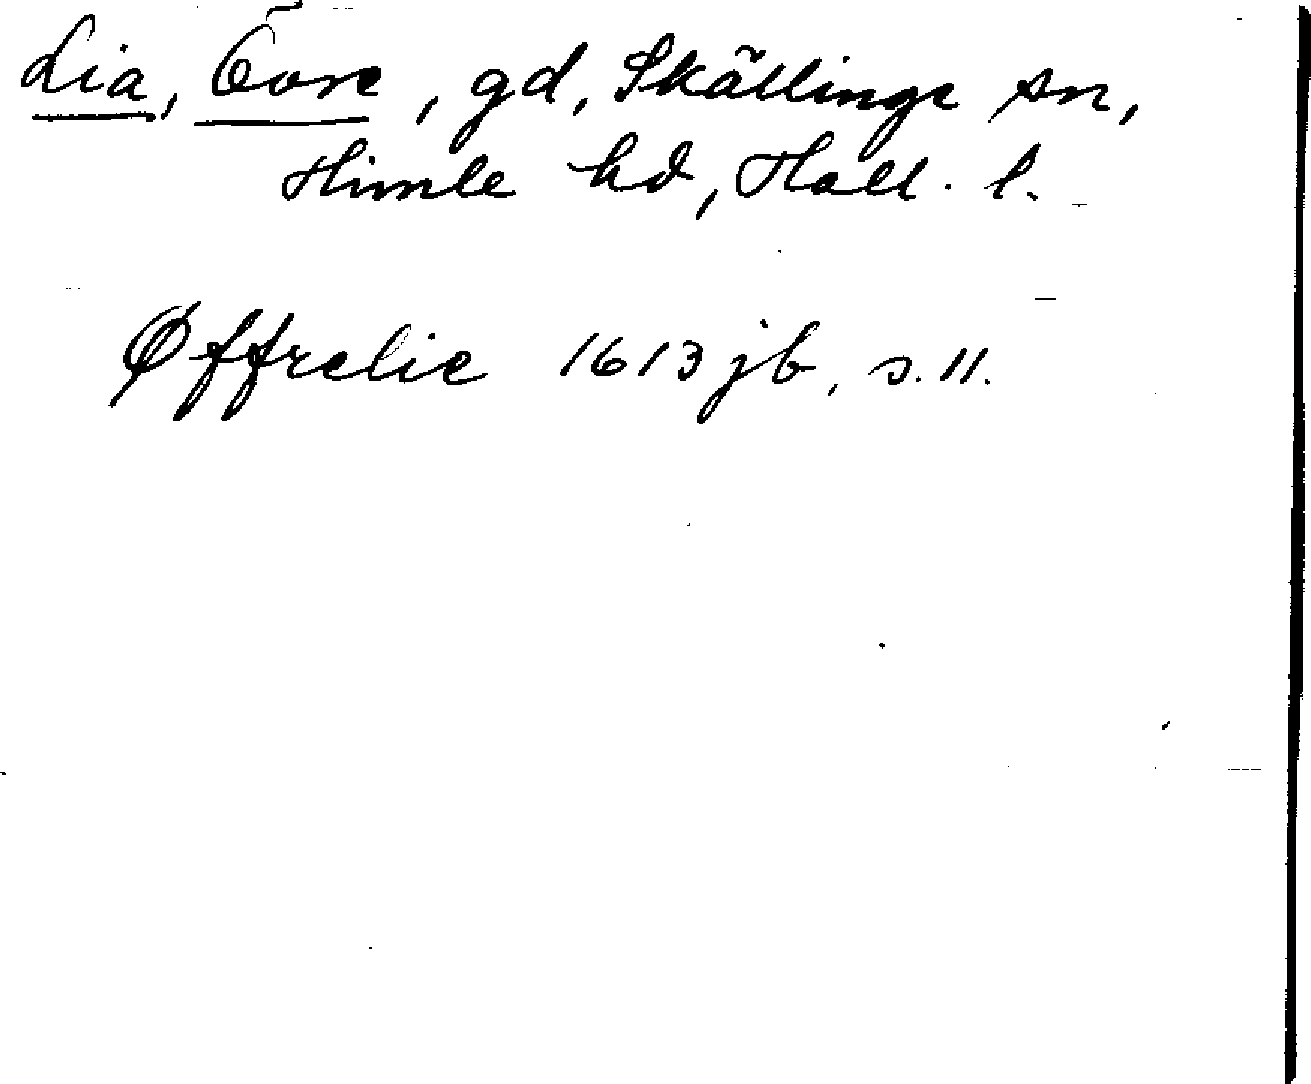 Lia, Övre, gd, Skällinge sn,
Himle hd, Hall. l.
Øffrelie 1613 jb, s. 11.